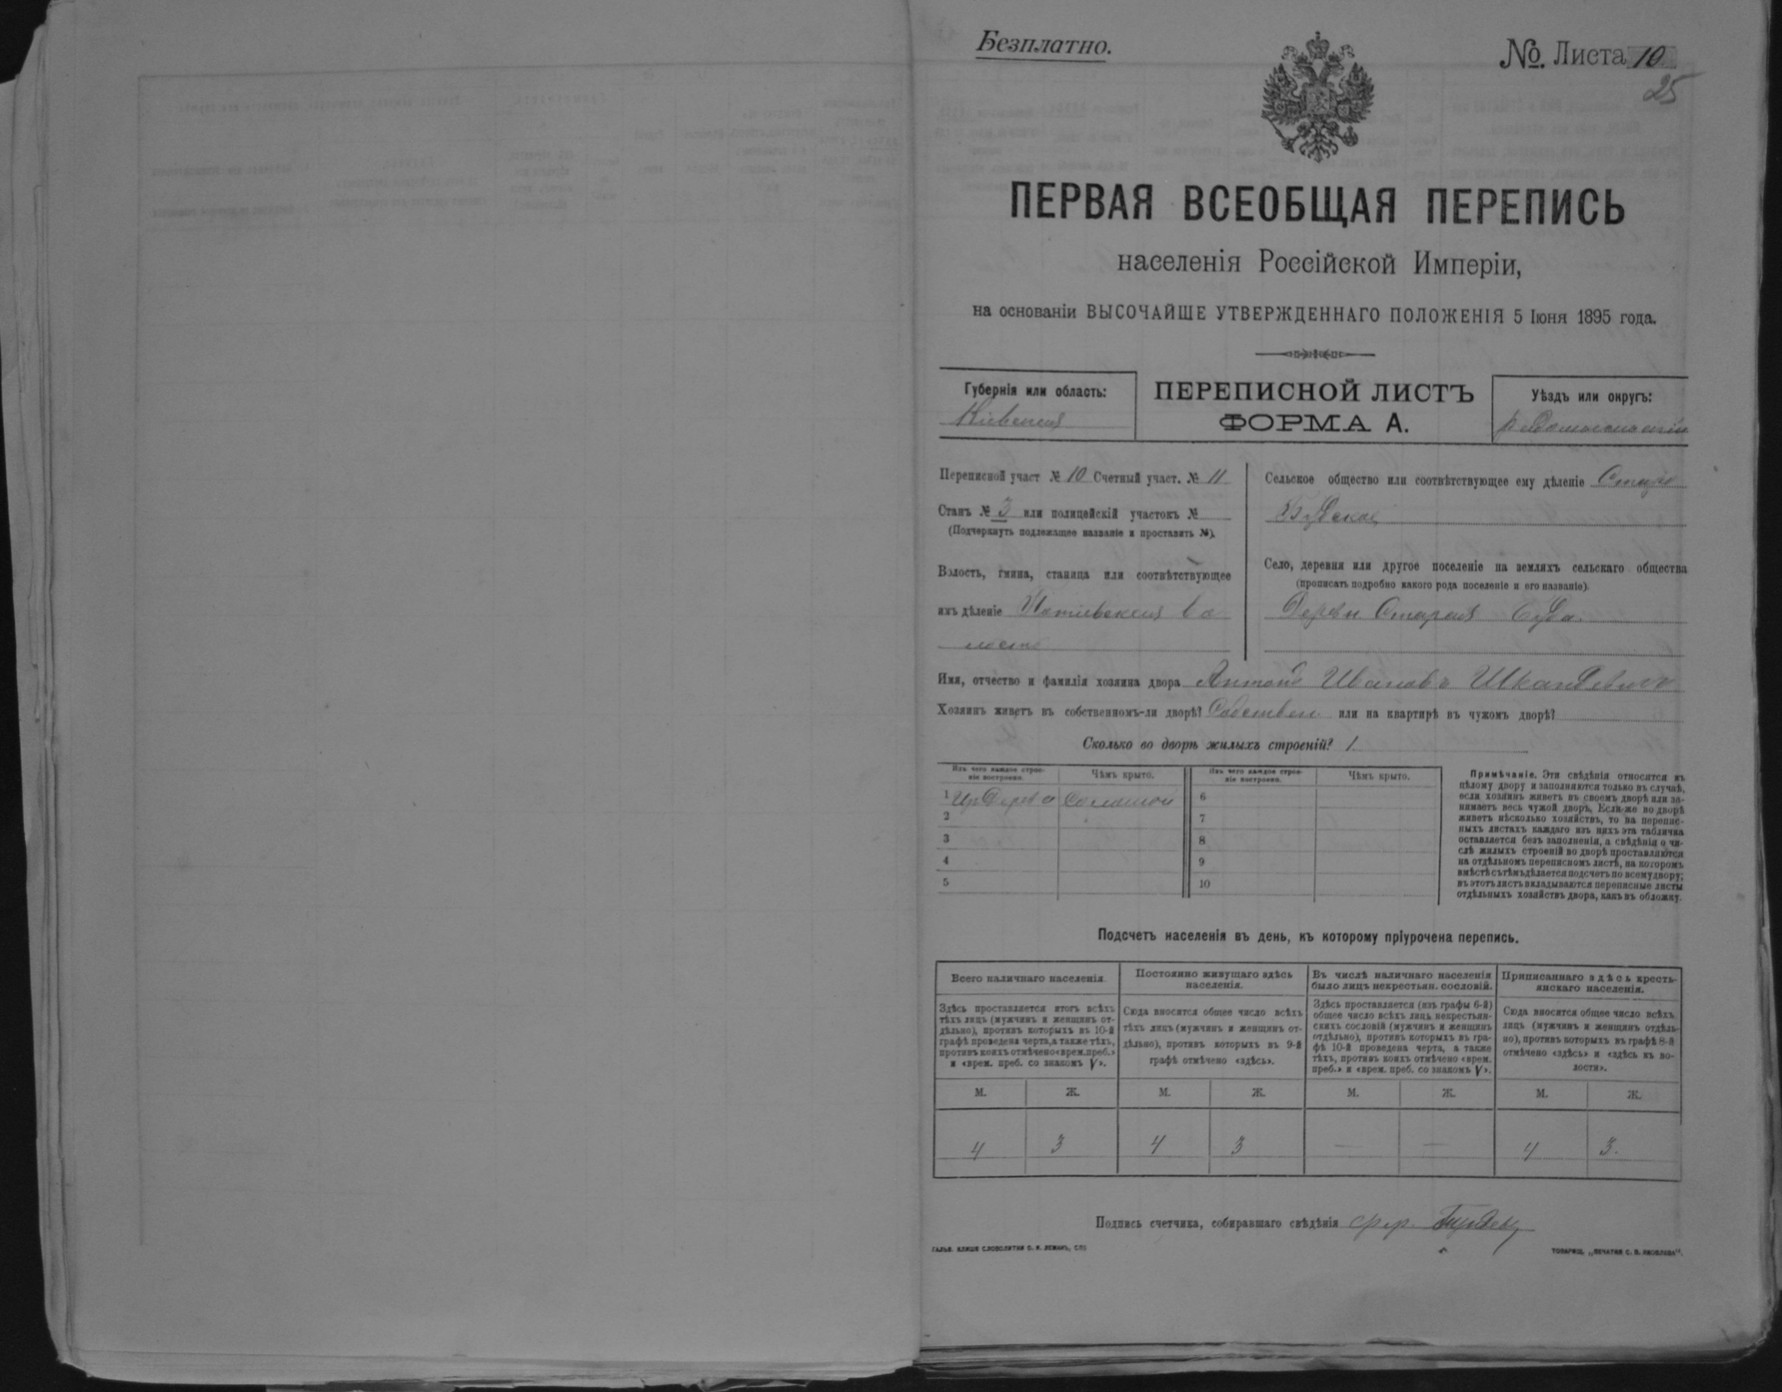 Безплатно.
№. Листа 10
25
ПЕРВАЯ ВСЕОБЩАЯ ПЕРЕПИСЬ
населенія Россійской Имперіи,
на основаніи ВЫСОЧАЙШЕ УТВЕРЖДЕННАГО ПОЛОЖЕНІЯ 5 Іюня 1895 года.
Губернія или область:
Кіевская
ПЕРЕПИСНОЙ ЛИСТЪ
ФОРМА А.
Уѣздъ или округъ:
Переписной участ № 10 Счетный участ. № 11
Станъ № 3 или полицейскій участокъ №
(Подчеркнуть подлежащее названіе и проставить №).
Волость, гмина, станица или соотвѣтствующее
имъ дѣленіе
Сельское общество или соотвѣтствующее ему дѣленіе Старо
Будское
Село, деревня или другое поселеніе на земляхъ сельскаго общества
(прописать подробно какого рода поселеніе и его названіе).
Деревн Старая Буда.
Имя, отчество и фамилія хозяина двора Антонъ Ивановъ
Хозяинъ живетъ въ собственномъ-ли дворѣ? Собствен или на квартирѣ въ чужомъ дворѣ?
Сколько во дворѣ жилыхъ строеній? 1
Изъ чего каждое строе-
ніе построено.
Чѣмъ крыто.
Изъ чего каждое строе-
ніе построено.
Чѣмъ крыто.
1 Изъ Дерева Соломой
2
3
4
5
6
7
8
9
10
Примѣчаніе. Эти свѣдѣнія относятся къ
цѣлому двору и заполняются только въ случаѣ,
если хозяинъ живетъ въ своемъ дворѣ или за-
нимаетъ весь чужой дворъ. Если-же во дворѣ
живетъ нѣсколько хозяйствъ, то на перепис-
ныхъ листахъ каждаго изъ нихъ эта табличка
оставляется безъ заполненія, а свѣдѣнія о чи-
слѣ жилыхъ строеній во дворѣ проставляются
на отдѣльномъ переписномъ листѣ, на которомъ
вмѣстѣ съ тѣмъ дѣлается подсчетъ по всему двору;
въ этотъ листъ вкладываются переписные листы
отдѣльныхъ хозяйствъ двора, какъ въ обложку.
Подсчетъ населенія въ день, къ которому пріурочена перепись.
Всего наличнаго населенія.
Здѣсь проставляется итогъ всѣхъ
тѣхъ лицъ (мужчинъ и женщинъ от-
дѣльно), противъ которыхъ въ 10-й
графѣ проведена черта, а также тѣхъ,
противъ коихъ отмѣчено «врем. преб.»
и «врем. преб. со знакомъ V».
Постоянно живущаго здѣсь
населенія.
Сюда вносится общее число всѣхъ
тѣхъ лицъ (мужчинъ и женщинъ от-
дѣльно), противъ которыхъ въ 9-й
графѣ отмѣчено «здѣсь».
Въ числѣ наличнаго населенія
было лицъ некрестьян. сословій.
Здѣсь проставляется (изъ графы 6-й)
общее число всѣхъ лицъ некрестьян-
скихъ сословій (мужчинъ и женщинъ
отдѣльно), противъ которыхъ въ гра-
фѣ 10-й проведена черта, а также
тѣхъ, противъ коихъ отмѣчено «врем.
преб.» и «врем. преб. со знакомъ V».
Приписаннаго здѣсь кресть-
янскаго населенія.
Сюда вносится общее число всѣхъ
лицъ (мужчинъ и женщинъ отдѣль-
но), противъ которыхъ въ графѣ 8-й
отмѣчено «здѣсь» и «здѣсь въ во-
лости».
М. Ж. М. Ж. М. Ж. М. Ж.
4 3 4 3 — — 4 3.
Подпись счетчика, собиравшаго свѣдѣнія
ГАЛЬВ. КЛИШЕ СЛОВОЛИТНИ О. И. ЛЕМАНЪ, СПб
ТОВАРИЩ. „ПЕЧАТНЯ С. П. ЯКОВЛЕВА".